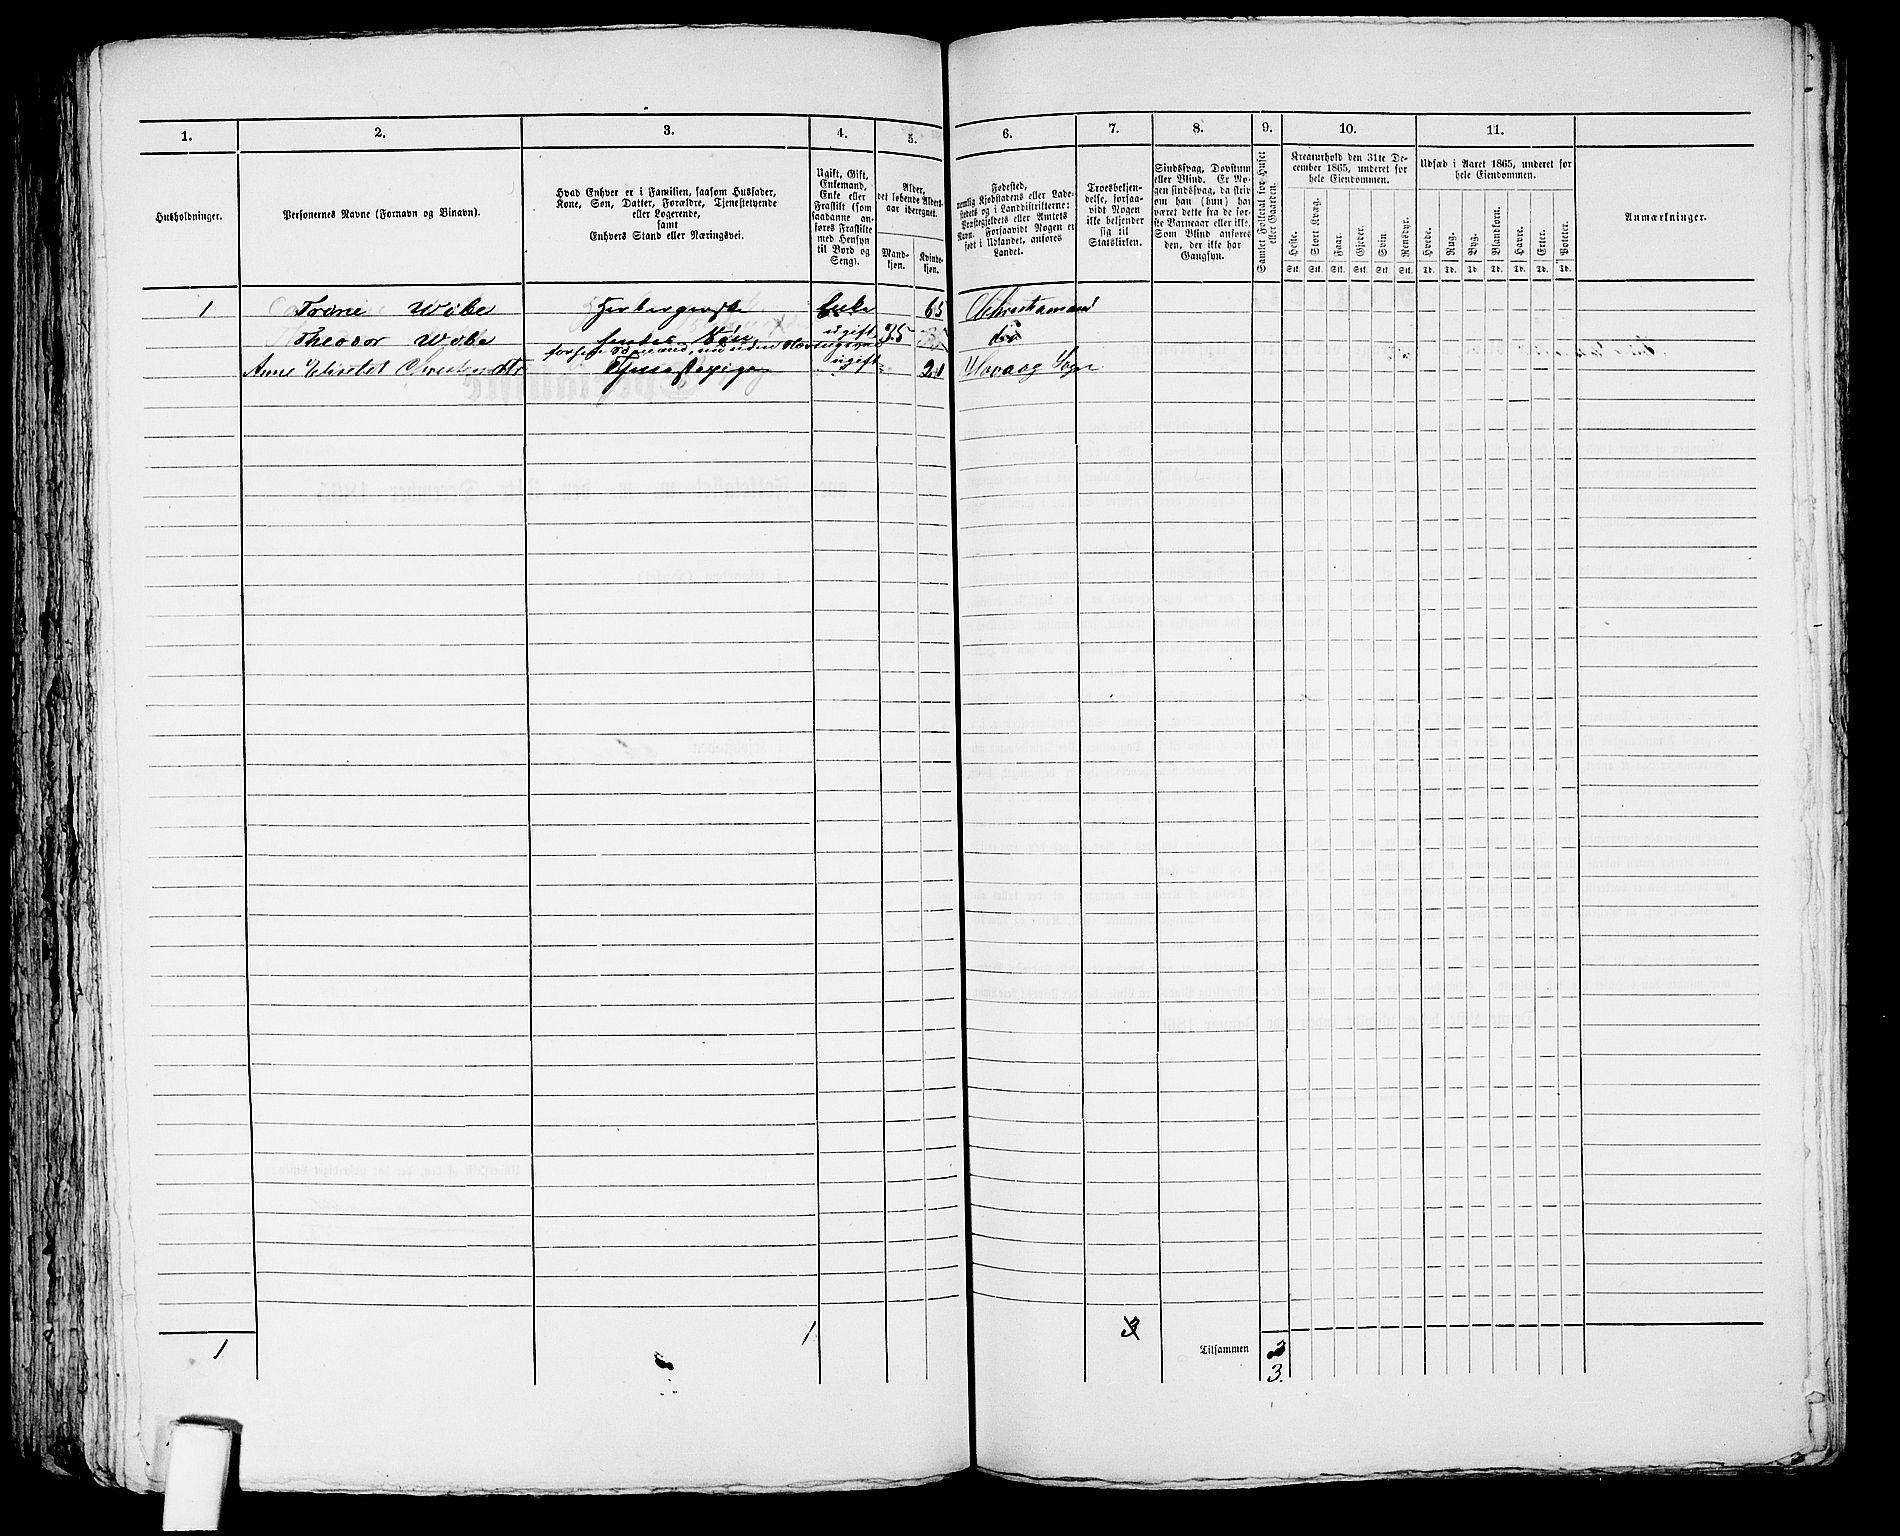 1. 2. 3. 4. 5. 6. 7. 8. 9. 10. 11.
Husholdninger.
Personernes Navne (Fornavn og Binavn).
Hvad Enhver er i Familien, saasom Husfader,
Kone, Søn, Datter, Forældre, Tjenestetyende
eller Logerende,
samt
Enhvers Stand eller Næringsvei.
Ugift, Gift,
Enkemand,
Enke eller
Fraskilt (som
saadanne an-
føres Fraskilte
med Hensyn
til Bord og
Seng).
Alder,
det løbende Alders-
aar iberegnet.
Mand-
kjøn.
Kvinde-
kjøn.
Fødested,
nemlig Kjøbstadens eller Lade-
stedets og i Landdistrikterne:
Præstegjeldets eller Amtets
Navn. Forsaavidt Nogen er
født i Udlandet, anføres
Landet.
Troesbekjen-
delse, forsaa-
vidt Nogen
ikke bekjender
sig til
Statskirken.
Sindssvag, Døvstum
eller Blind. Er No-
gen sindssvag, da skriv
om han (hun) har
været dette fra de før-
ste Barneaar eller ikke.
Som Blind anføres
den, der ikke har
Gangsyn.
Samlet Folketal for Huset
eller Gaarden.
Kreaturhold den 31te De-
cember 1865, underet for
hele Eiendommen.
Heste. Stort Kvæg. Faar. Gjeder. Svin. Rensdyr.
Stk. Stk. Stk. Stk. Stk. Stk.
Udsæd i Aaret 1865, underet for
hele Eiendommen.
Hvede. Rug. Byg. Blandkorn. Havre. Erter. Poteter.
Td. Td. Td. Td. Td. Td. Td.
Anmærkninger.
1 Wöbe Enke 65 Christiansand
Theodor Wöbe Søn ugift 25 do
Anne Elisabet ugift 21 Sogn
1 1 3 Tilsammen
3.